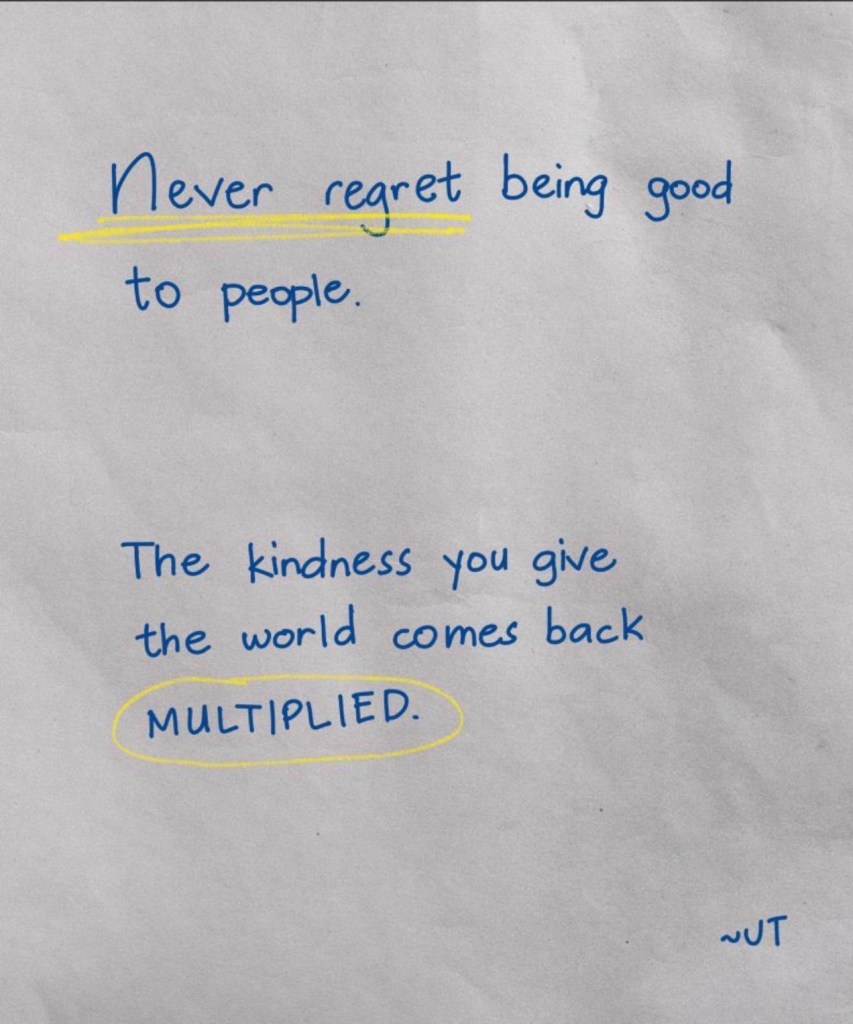 Never regret being good
to people.
The kindness you give
the world comes back
MULTIPLIED.
~UT